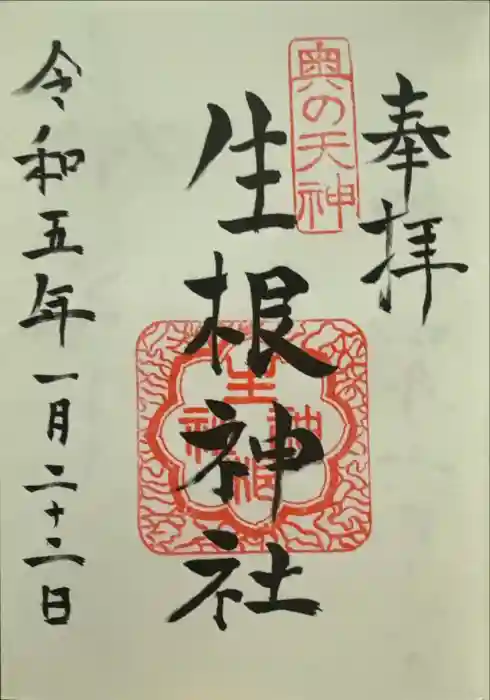 奉拝
奥の天神
生根神社
令和五年一月二十二日